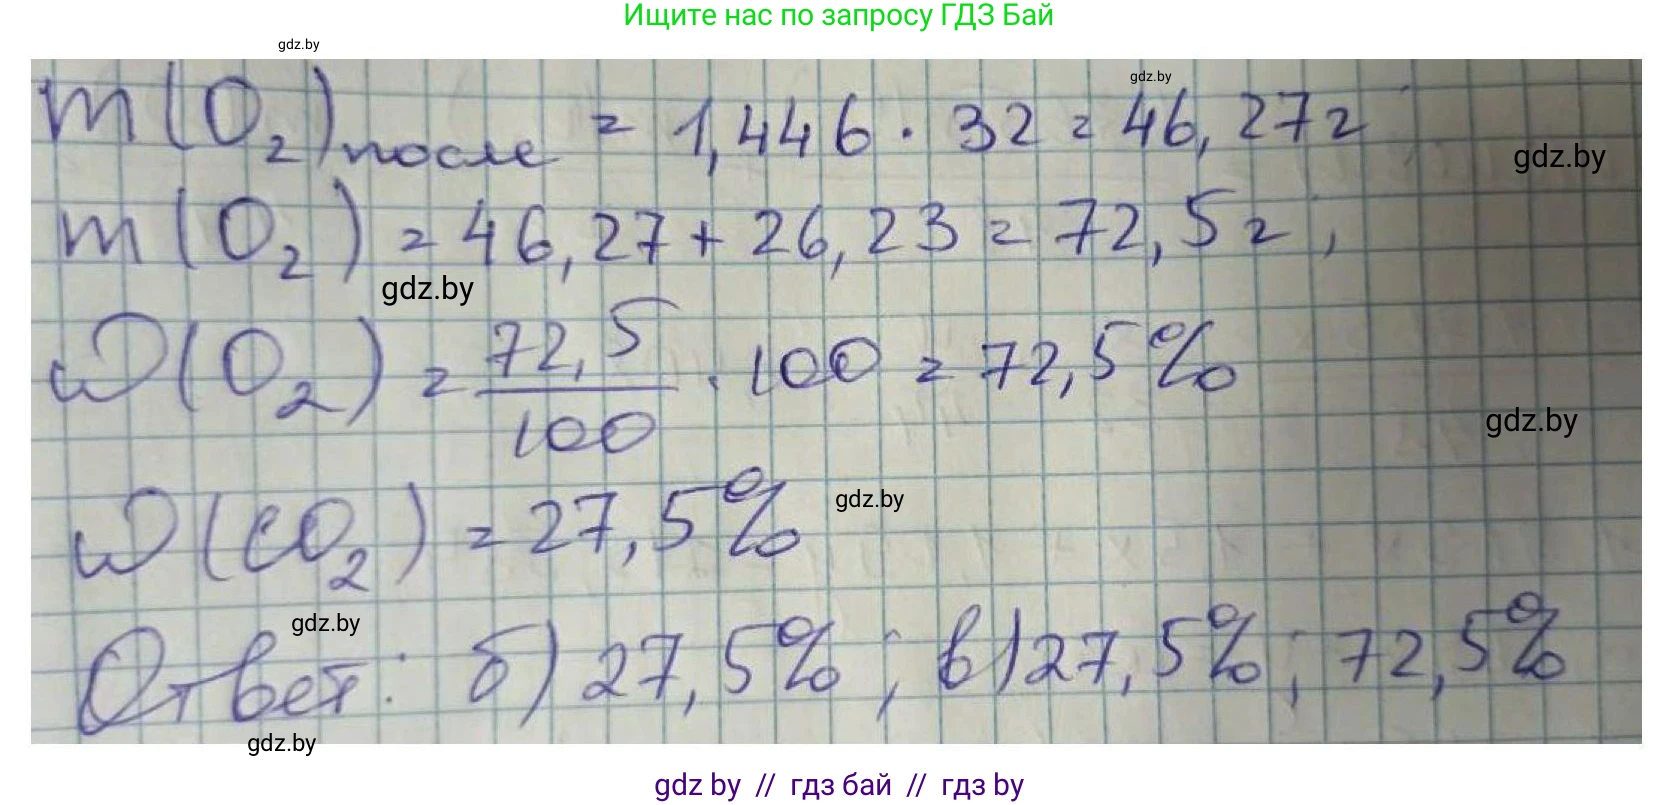 Ищите нас по запросу ГДЗ Бай
gdz.by
gdz.by
m(O₂)после = 1,446 · 32 = 46,27г
gdz.by
m(O₂) = 46,27 + 26,23 = 72,5г;
gdz.by
ω(O₂) = 72,5/100 · 100 = 72,5%
gdz.by
ω(CO₂) = 27,5%
gdz.by
gdz.by
Ответ: б) 27,5%; в) 27,5%; 72,5%
gdz.by
gdz by // гдз бай // гдз by